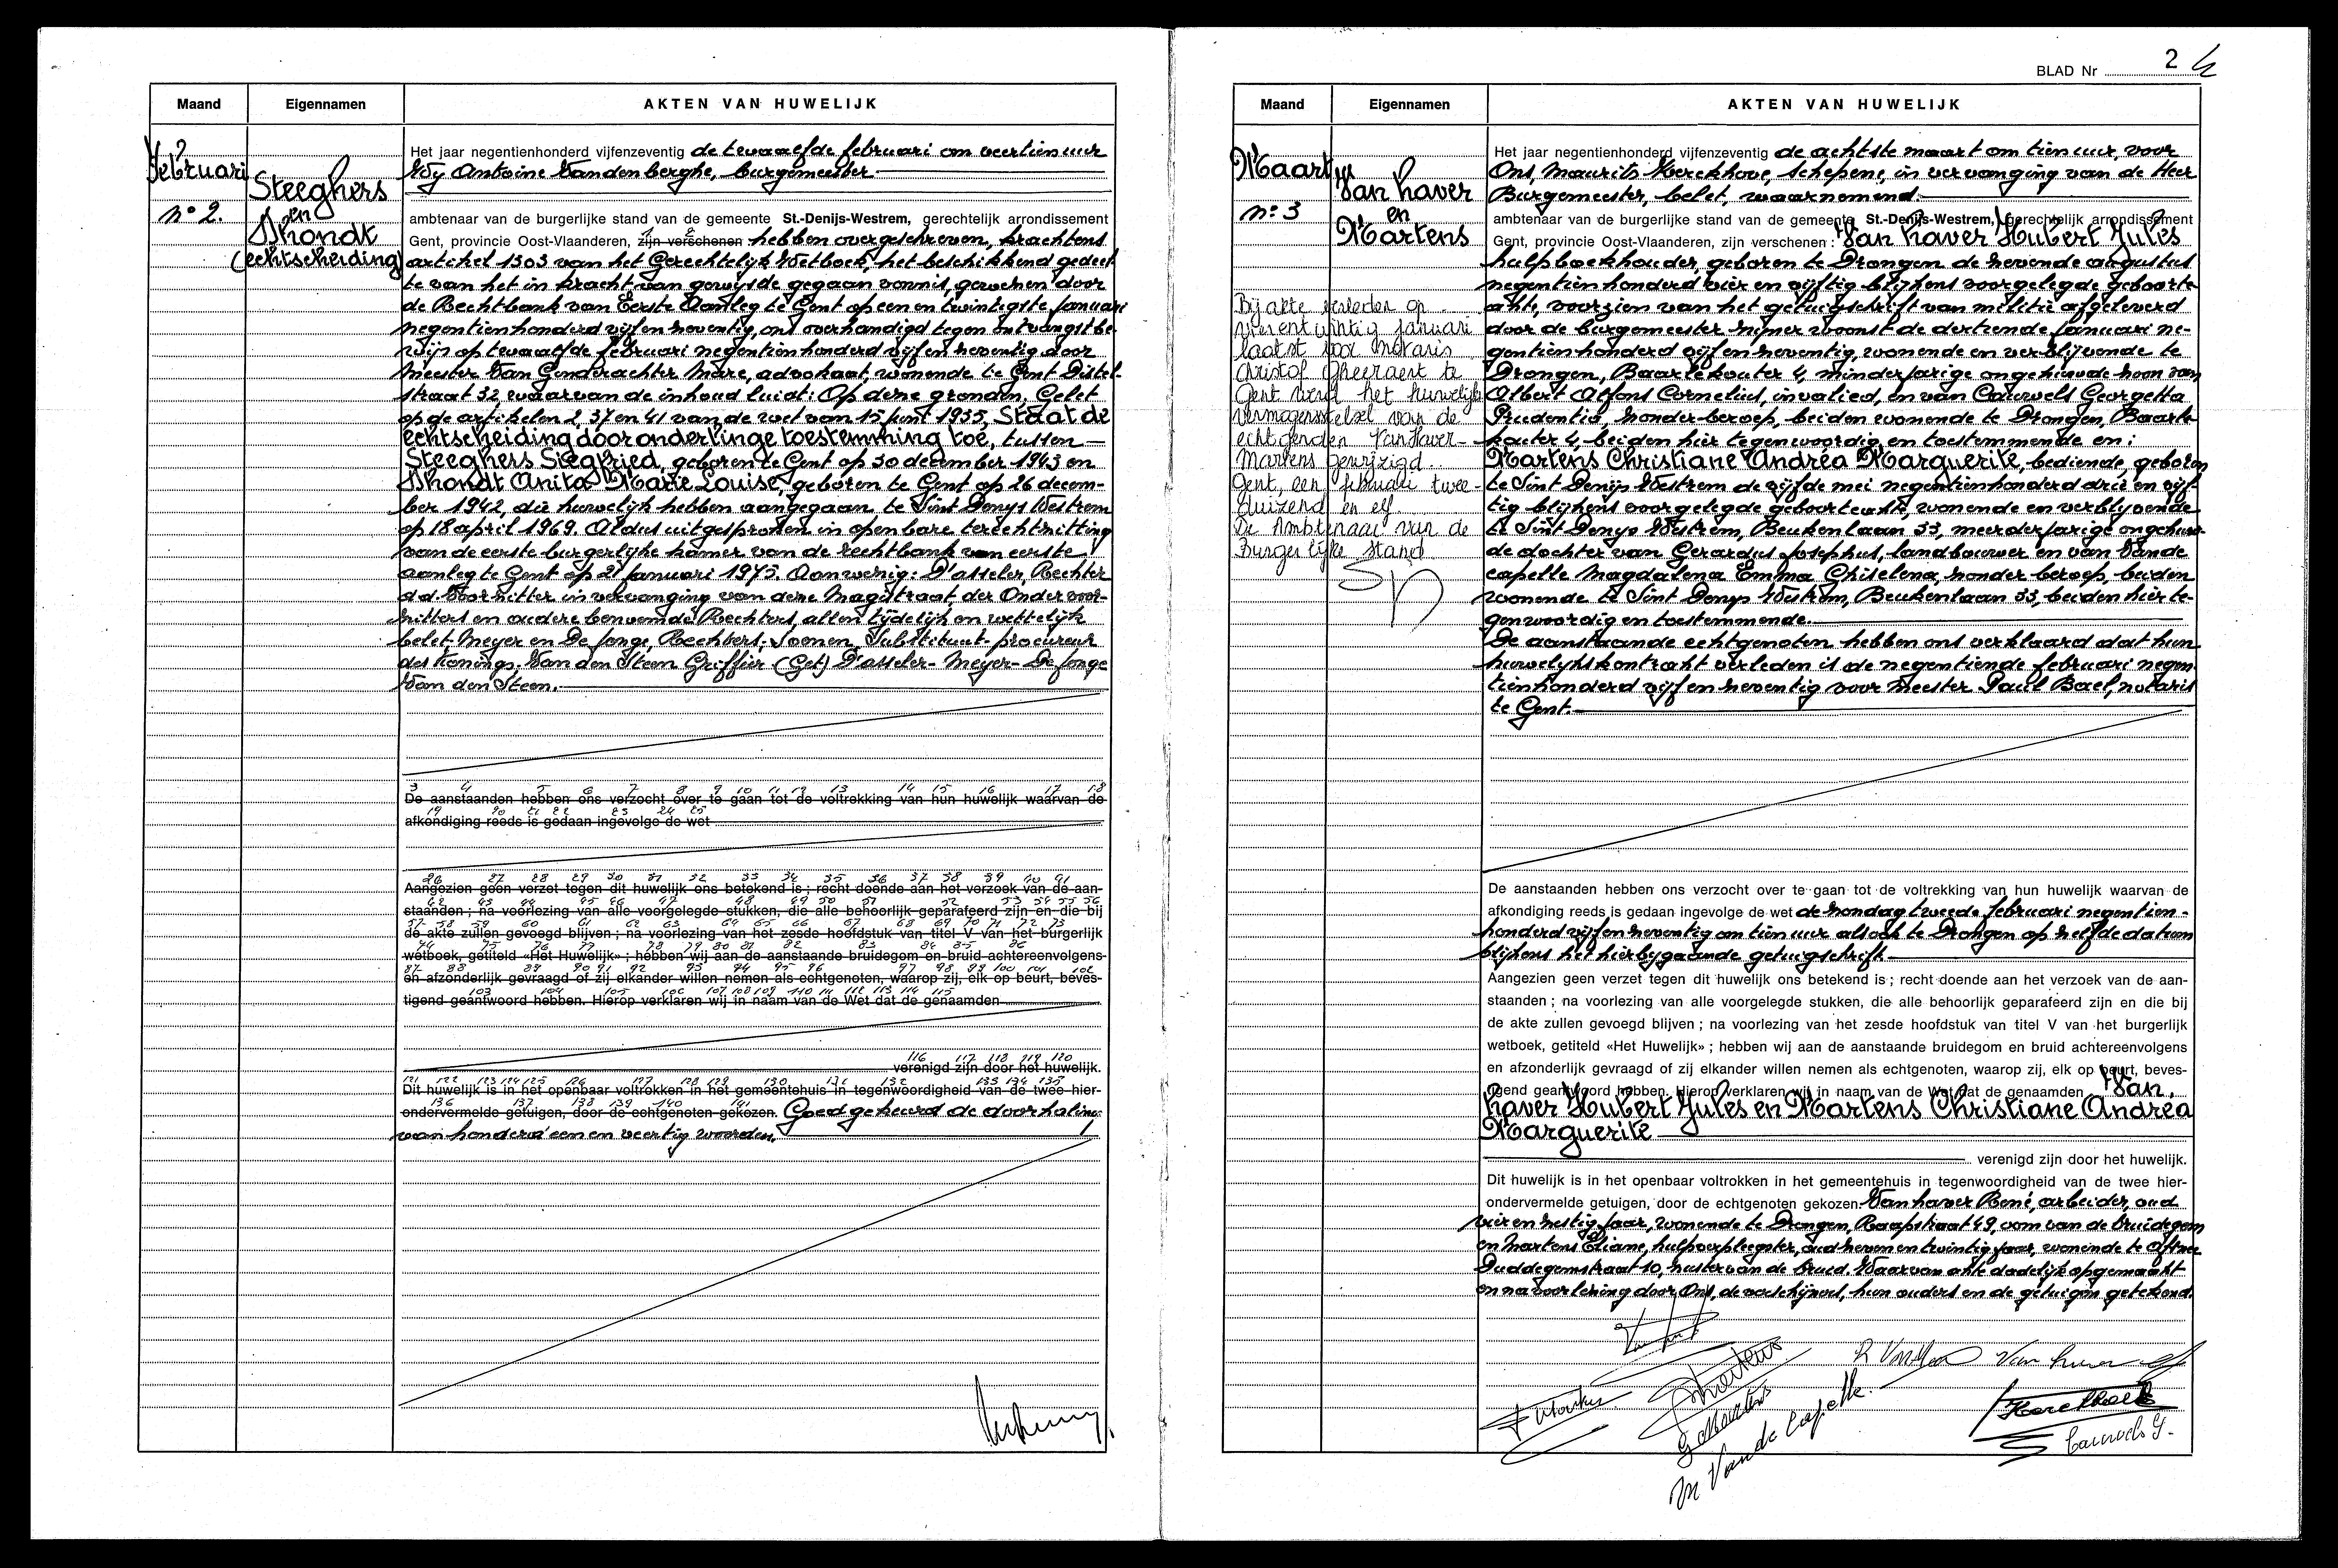 Maand
Eigennamen
AKTEN VAN HUWELIJK
Februari
n° 2.
Steeghers
en
Dhondt
(echtscheiding)
Het jaar negentienhonderd vijfenzeventig de twaalfde februari om veertien uur
Wij Antoine Vandenberghe, burgemeester
ambtenaar van de burgerlijke stand van de gemeente St.-Denijs-Westrem, gerechtelijk arrondissement
Gent, provincie Oost-Vlaanderen, zijn verschenen hebben overgeschreven, krachtens
artikel 1303 van het Gerechtelijk Wetboek, het beschikkend gedeel
te van het in kracht van gewijsde gegaan vonnis, gewezen door
de Rechtbank van Eerste Aanleg te Gent op een en twintigste januari
negentienhonderd vijfenzeventig, ons overhandigd tegen ontvangstbe
wijs op twaalfde februari negentienhonderd vijfenzeventig door
meester Van Gendrachter Marc, advokaat, wonende te Gent Distel-
straat 32 waarvan de inhoud luidt: Op deze gronden, Gelet
op de artikelen 2, 37 en 41 van de wet van 15 juni 1935, Staat de
echtscheiding door onderlinge toestemming toe, tussen
Steeghers Siegfried, geboren te Gent op 30 december 1943 en
Dhondt Anita Marie Louise, geboren te Gent op 26 decem-
ber 1942, die huwelijk hebben aangegaan te Sint Denys Westrem
op 18 april 1969. Aldus uitgesproken in openbare terechtzitting
van de eerste burgerlijke kamer van de rechtbank van eerste
aanleg te Gent op 21 januari 1975. Aanwezig: D'asseler, Rechter
d.d. Voorzitter in vervanging van deze Magistraat der Ondervoor-
zitters en oudere benoemde Rechters, allen tijdelijk en wettelijk
belet, Meyer en De Jonge, Rechters; Soenen, Substituut-procureur
des Konings. Van den Steen Griffier (Get) D'asseler-Meyer-De Jonge
Van den Steen.
De aanstaanden hebben ons verzocht over te gaan tot de voltrekking van hun huwelijk waarvan de
afkondiging reeds is gedaan ingevolge de wet
Aangezien geen verzet tegen dit huwelijk ons betekend is ; recht doende aan het verzoek van de aan-
staanden ; na voorlezing van alle voorgelegde stukken, die alle behoorlijk geparafeerd zijn en die bij
de akte zullen gevoegd blijven ; na voorlezing van het zesde hoofdstuk van titel V van het burgerlijk
wetboek, getiteld «Het Huwelijk» ; hebben wij aan de aanstaande bruidegom en bruid achtereenvolgens
en afzonderlijk gevraagd of zij elkander willen nemen als echtgenoten, waarop zij, elk op beurt, beves-
tigend geantwoord hebben. Hierop verklaren wij in naam van de Wet dat de genaamden
verenigd zijn door het huwelijk.
Dit huwelijk is in het openbaar voltrokken in het gemeentehuis in tegenwoordigheid van de twee hier-
ondervermelde getuigen, door de echtgenoten gekozen. Goedgekeurd de doorhaling
van honderd een en veertig woorden.
BLAD Nr 2
Maand
Eigennamen
AKTEN VAN HUWELIJK
Maart
n° 3
Van haver
en
Martens
Bij akte verleden op
vierentwintig januari
laatst voor notaris
Christof Gheeraert te
Gent werd het huwelijks
vermogensstelsel van de
echtgenoten Van Haver-
Martens gewijzigd.
Gent, een februari twee-
duizend en elf
De Ambtenaar van de
Burgerlijke Stand
Het jaar negentienhonderd vijfenzeventig de achtste maart om tien uur, voor
Ons, Maurits Kerckhove, schepene, in vervanging van de Heer
Burgemeester, belet, waarnemend.
ambtenaar van de burgerlijke stand van de gemeente St.-Denijs-Westrem, gerechtelijk arrondissement
Gent, provincie Oost-Vlaanderen, zijn verschenen : Van haver Hubert Jules
hulpboekhouder, geboren te Drongen de zevende augustus
negentienhonderd vier en vijftig blijkens voorgelegde geboorte
akte, voorzien van het getuigschrift van militie afgeleverd
door de burgemeester zijner woonst de dertiende januari ne-
gentienhonderd vijfenzeventig, wonende en verblijvende te
Drongen, Baarlekouter 4, minderjarige ongehuwde zoon van
Albert Alfons Cornelius, invalied, en van Cauwels Georgetta
Prudentia, zonder beroep, beiden wonende te Drongen, Baarle-
kouter 4, beiden hier tegenwoordig en toestemmende en:
Martens Christiane Andréa Marguerite, bediende, geboren
te Sint Denijs Westrem de vijfde mei negentienhonderd drie en vijf
tig blijkens voorgelegde geboorteakte, wonende en verblijvende
te Sint Denys Westrem, Beukenlaan 33, meerderjarige ongehuw-
de dochter van Gerardus Josephus, landbouwer en van Vande
capelle Magdalena Emma Ghislena, zonder beroep, beiden
wonende te Sint Denys Westrem, Beukenlaan 33, beiden hier te-
genwoordig en toestemmende.
De aanstaande echtgenoten hebben ons verklaard dat hun
huwelijkskontrakt verleden is de negentiende februari negen-
tienhonderd vijfenzeventig voor meester Paul Bael, notaris
te Gent.
De aanstaanden hebben ons verzocht over te gaan tot de voltrekking van hun huwelijk waarvan de
afkondiging reeds is gedaan ingevolge de wet de zondag tweede februari negentien-
honderd vijfenzeventig om tien uur alsook te Drongen op zelfde datum
blijkens het hierbijgaande getuigschrift.
Aangezien geen verzet tegen dit huwelijk ons betekend is ; recht doende aan het verzoek van de aan-
staanden ; na voorlezing van alle voorgelegde stukken, die alle behoorlijk geparafeerd zijn en die bij
de akte zullen gevoegd blijven ; na voorlezing van het zesde hoofdstuk van titel V van het burgerlijk
wetboek, getiteld «Het Huwelijk» ; hebben wij aan de aanstaande bruidegom en bruid achtereenvolgens
en afzonderlijk gevraagd of zij elkander willen nemen als echtgenoten, waarop zij, elk op beurt, beves-
tigend geantwoord hebben. Hierop verklaren wij in naam van de Wet dat de genaamden Van
haver Hubert Jules en Martens Christiane Andréa
Marguerite
verenigd zijn door het huwelijk.
Dit huwelijk is in het openbaar voltrokken in het gemeentehuis in tegenwoordigheid van de twee hier-
ondervermelde getuigen, door de echtgenoten gekozen. Van haver René, arbeider, oud
vier en zestig jaar, wonende te Drongen, Raapstraat 49, oom van de bruidegom
en Martens Eliane, hulpverpleegster, oud zeven en twintig jaar, wonende te
Duddegemstraat 10, zuster van de bruid. Waarvan akte dadelijk opgemaakt
en na voorlezing door Ons, de verschijners, hun ouders en de getuigen getekend.
Martens
M Vande Capelle
Van haver
Cauwels G.